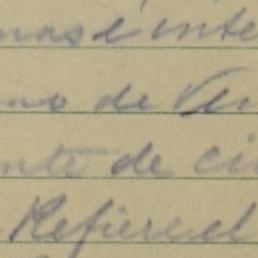 mas é inte
no de Ven
nte de ci
Refiere el